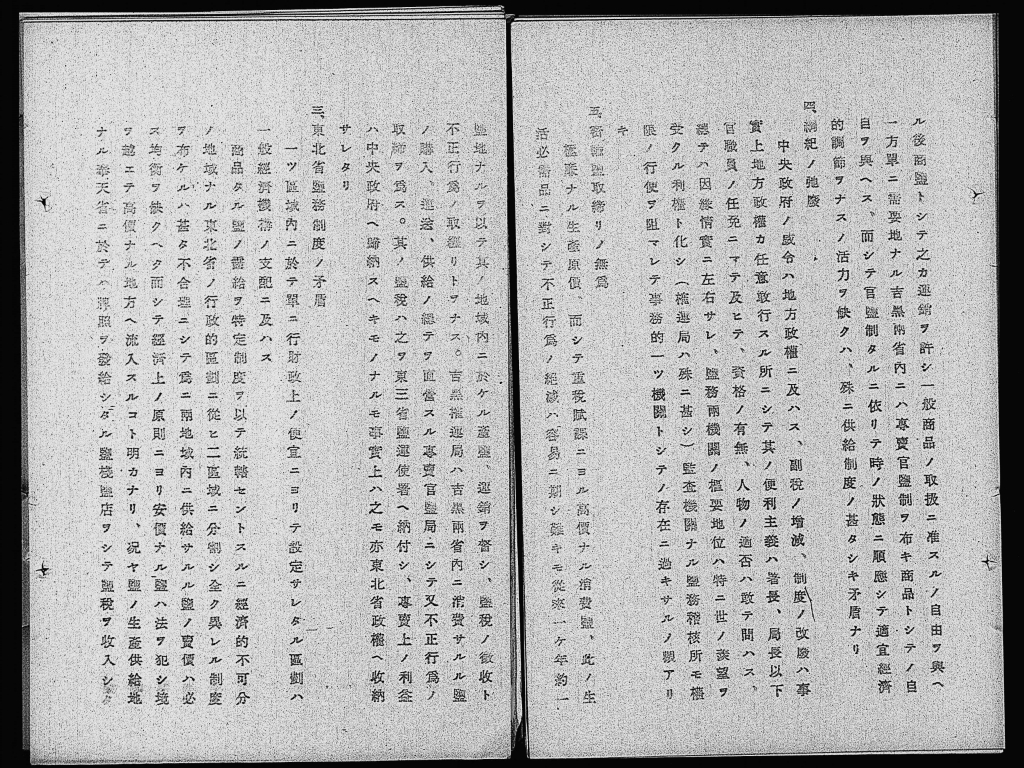 ル後商鹽トシテ之カ運銷ヲ許シ一般商品ノ取扱ニ准スルノ自由ヲ與ヘ
一方單ニ需要地ナル吉黑兩省内ニハ專賣官鹽制ヲ布キ商品トシテノ自
由ヲ與ヘス、而シテ官鹽制タルニ依リテ時ノ狀態ニ順應シテ適宜經濟
的調節ヲナスノ活力ヲ缺クハ、殊ニ供給制度ノ甚タシキ矛盾ナリ
四、綱紀ノ弛廢
中央政府ノ威令ハ地方政權ニ及ハス、副税ノ增減、制度ノ改廢ハ事
實上地方政權カ任意敢行スル所ニシテ其ノ便利主義ハ署長、局長以下
官職員ノ任免ニマテ及ヒテ、資格ノ有無、人物ノ適否ハ敢テ問ハス、
總テハ因緣情實ニ左右サレ、鹽務兩機關ノ樞要地位ハ特ニ世ノ羨望ヲ
受クル利權ト化シ（榷運局ハ殊ニ甚シ）監査機關ナル鹽務稽核所モ權
限ノ行使ヲ阻マレテ事務的一ツ機關トシテノ存在ニ過キサルノ觀アリ
キ
五、密鹽取締リノ無爲
極廉ナル生產原價、而シテ重税賦課ニヨル高價ナル消費鹽、此ノ生
活必需品ニ對シテ不正行爲ノ絕滅ハ容易ニ期シ難キモ從來一ケ年約一
鹽地ナルヲ以テ其ノ地域内ニ於ケル產鹽、運銷ヲ督シ、鹽税ノ徵收ト
不正行爲ノ取締リトヲナス。吉黑榷運局ハ吉黑兩省内ニ消費サルル鹽
ノ購入、運送、供給ノ總テヲ直營スル專賣官鹽局ニシテ又不正行爲ノ
取締ヲ爲ス。其ノ鹽税ハ之ヲ東三省鹽運使署ヘ納付シ、專賣上ノ利益
ハ中央政府ヘ歸納スヘキモノナルモ事實上ハ之モ亦東北省政權ヘ收納
サレタリ
三、東北省鹽務制度ノ矛盾
一ツ區域内ニ於テ單ニ行財政上ノ便宜ニヨリテ設定サレタル區劃ハ
一般經濟機構ノ支配ニ及ハス
商品タル鹽ノ需給ヲ特定制度ヲ以テ統轄セントスルニ經濟的不可分
ノ地域ナル東北省ノ行政的區劃ニ從ヒ二區域ニ分割シ全ク異レル制度
ヲ布ケルハ甚タ不合理ニシテ爲ニ兩地域内ニ供給サルル鹽ノ賣價ハ必
ス均衡ヲ缺クヘク而シテ經濟上ノ原則ニヨリ安價ナル鹽ハ法ヲ犯シ境
ヲ越エテ高價ナル地方ヘ流入スルコト明カナリ、況ヤ鹽ノ生產供給地
ナル奉天省ニ於テハ准照ヲ發給シタル鹽棧鹽店ヲシテ鹽税ヲ收入シタ